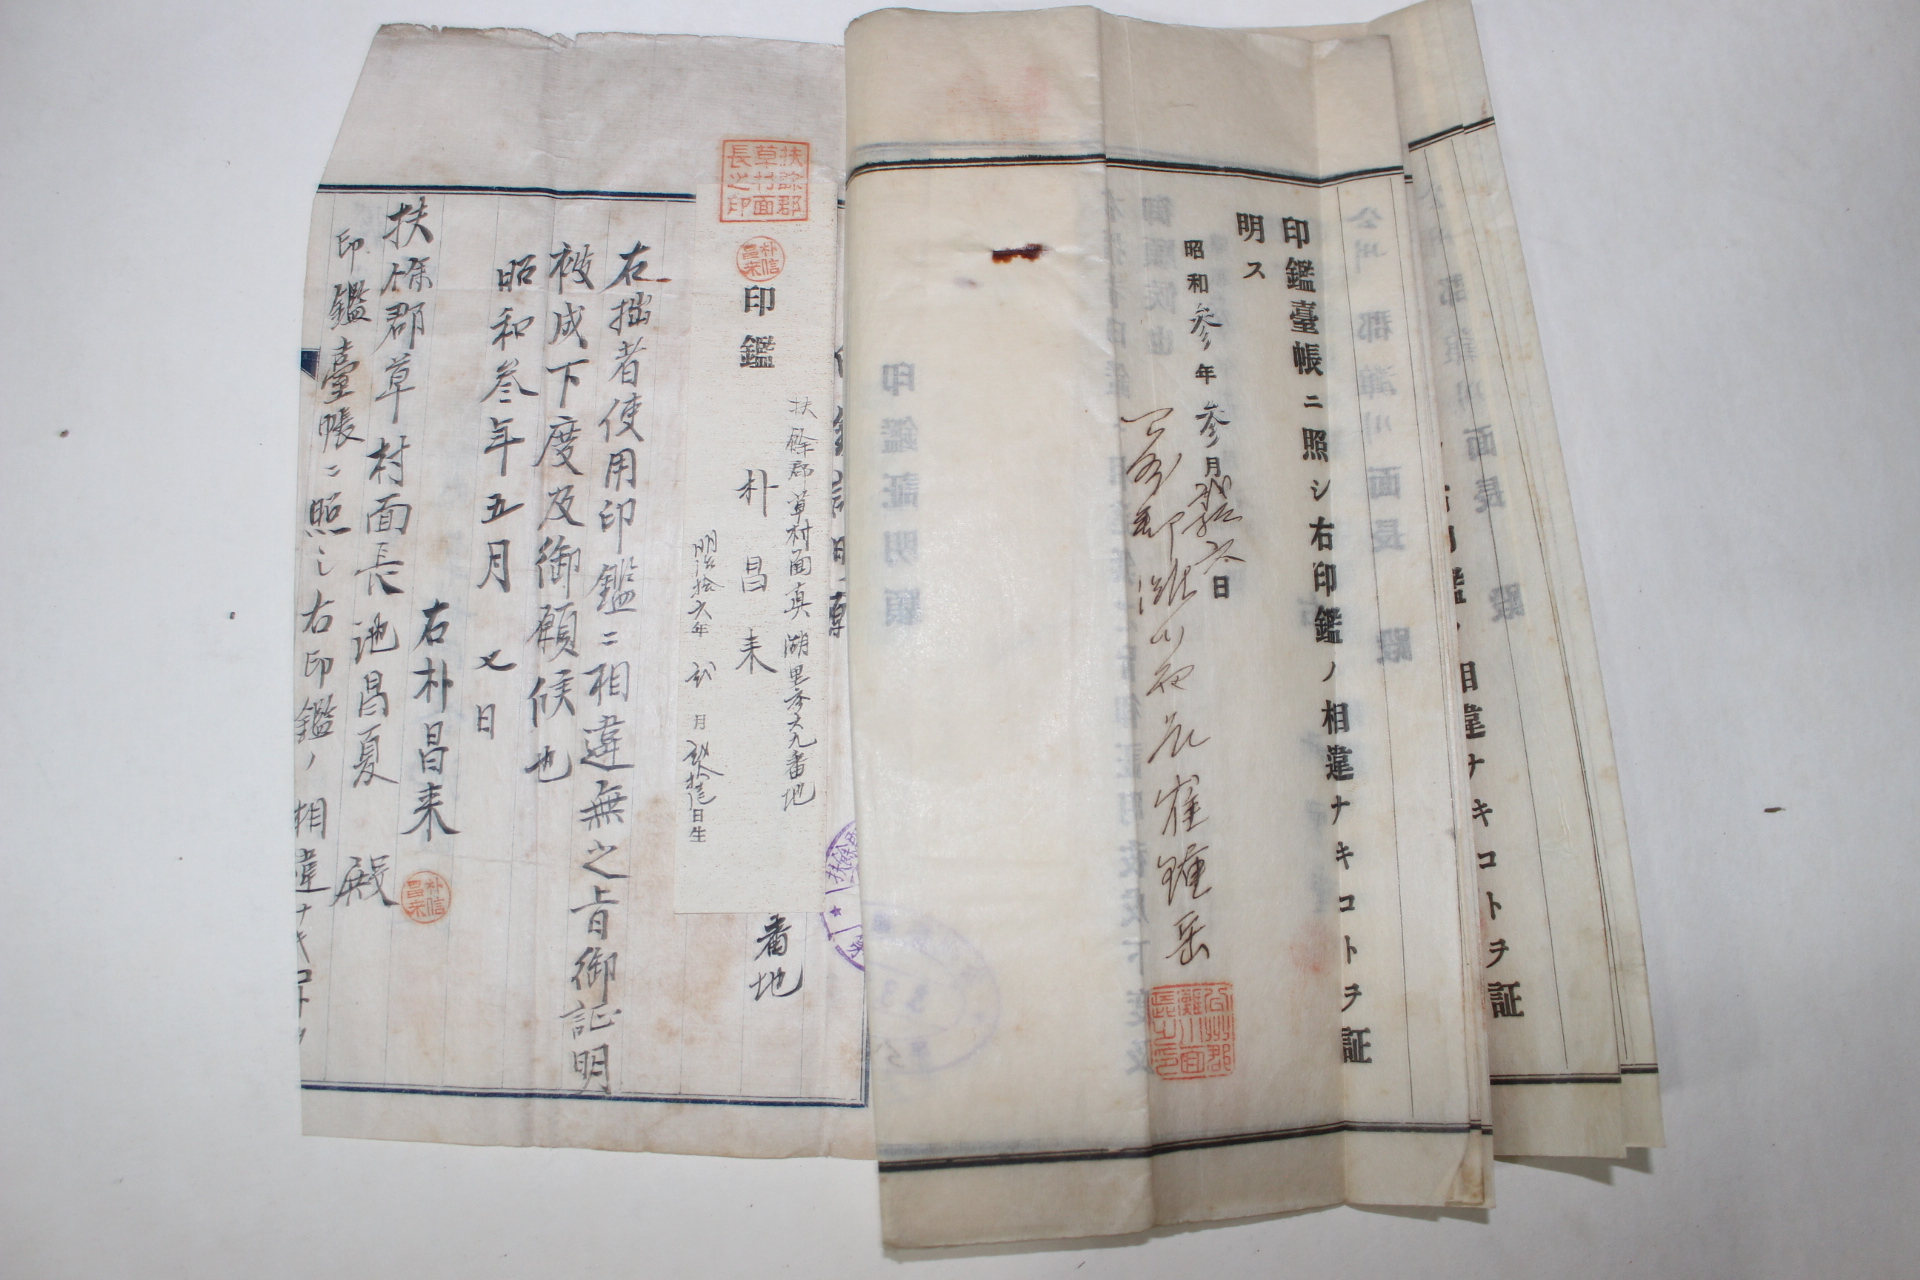 印鑑臺帳ニ照シ右印鑑ノ相違ナキコトヲ証
明ス
昭和参年参月貳拾六日
公州郡灘川面長 崔鍾岳
公州郡
灘川面
長之印
相違ナキコトヲ証
扶餘郡
草村面
長之印
印鑑
扶餘郡草村面真湖里参六九番地
朴昌来
明治拾六年貳月貳拾壱日生
番地
右拙者使用印鑑ニ相違無之旨御証明
被成下度及御願候也
昭和参年五月七日
右朴昌来
朴信
昌来
扶餘郡草村面長池昌夏殿
印鑑臺帳ニ照シ右印鑑ノ相違ナキコトヲ
公州郡灘川面長殿
印鑑証明願